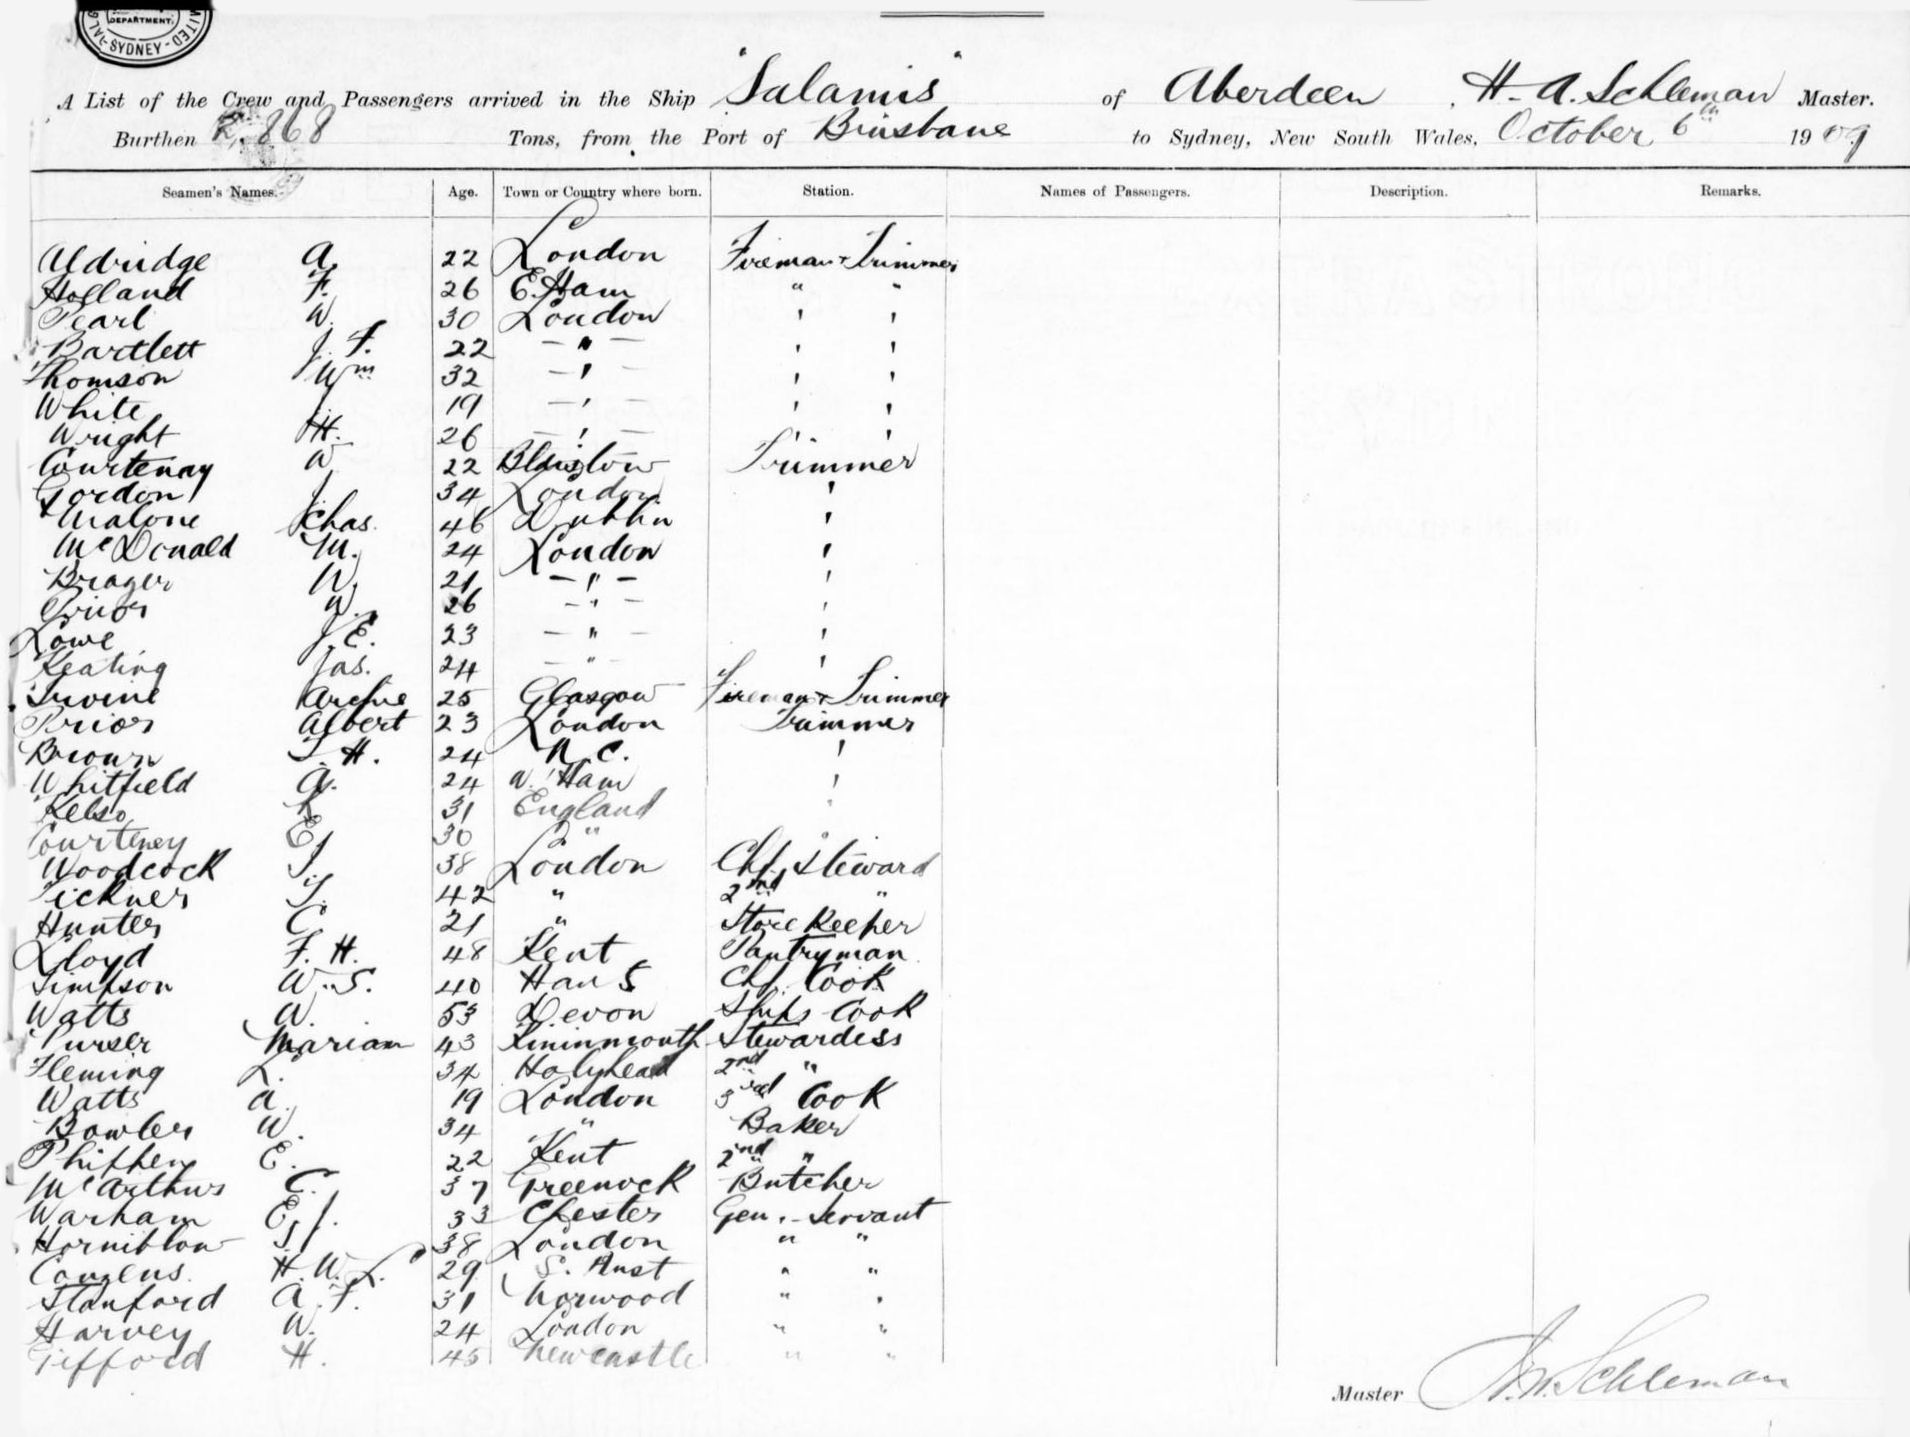 DEPARTMENT.
SYDNEY
A List of the Crew and Passengers arrived in the Ship "Salamis" of Aberdeen, H. A. Schleman Master.
Burthen 2,868 Tons, from the Port of Brisbane to Sydney, New South Wales, October 6th 1909
Seamen's Names. Age. Town or Country where born. Station. Names of Passengers. Description. Remarks.
Aldridge A. 22 London Fireman & Trimmer
Holland F. 26 E. Ham " "
Pearl W. 30 London " "
Bartlett J. F. 22 — " — " "
Thomson Wm 32 — " — " "
White J. 19 — " — " "
Wright H. 26 — " — " "
Courtenay W 22 Trimmer
Gordon J. 34 London "
Malone Chas. 46 Dublin "
McDonald M. 24 London "
Brager W. 21 — " — "
Prior W. 26 — " — "
Lowe J. E. 23 — " — "
Keating Jas. 24 — " — "
Irvine Archie 25 Glasgow Fireman & Trimmer
Prior Albert 23 London Trimmer
Brown T. H. 24 N. C. "
Whitfield A. 24 W. Ham "
Kelso R 31 England "
Courteney E J 30 " "
Woodcock J. 38 London Chf. Steward
Tickner T. 42 " 2nd "
Hunter C. 21 " Store Keeper
Lloyd F. H. 48 Kent Pantryman
Simpson W. S. 40 Hants Chf. Cook
Watts W. 53 Devon Ships Cook
Purser Mariam 43 Kininmouth Stewardess
Fleming L. 34 Holyhead 2nd "
Watts A. 19 London 3rd Cook
Bowler W. 34 " Baker
Phippen E. 22 Kent 2nd "
McArthur C. 37 Greenock Butcher
Warham E. J. 33 Chester Gen. Servant
Horniblow J. 38 London " "
Couzens H. W. L. 29 S. Aust " "
Stanford A. F. 31 Norwood " "
Harvey W. 24 London " "
Gifford H. 45 Newcastle " "
Master H. A. Schleman